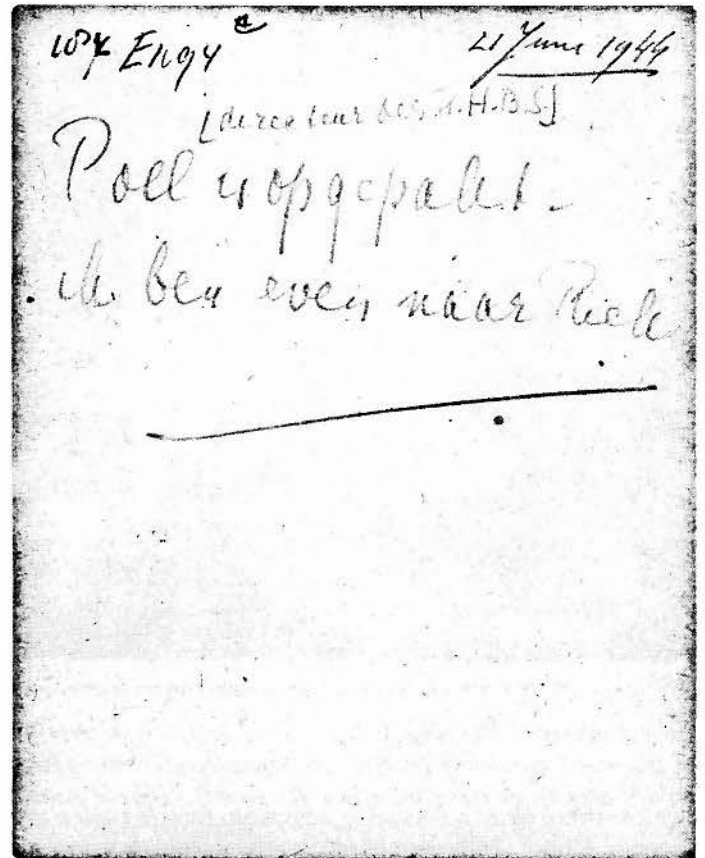 Engy 21 Juni 1944
[directeur der H.B.S]
Poel is opgepakt.
ik ben even naar Riek